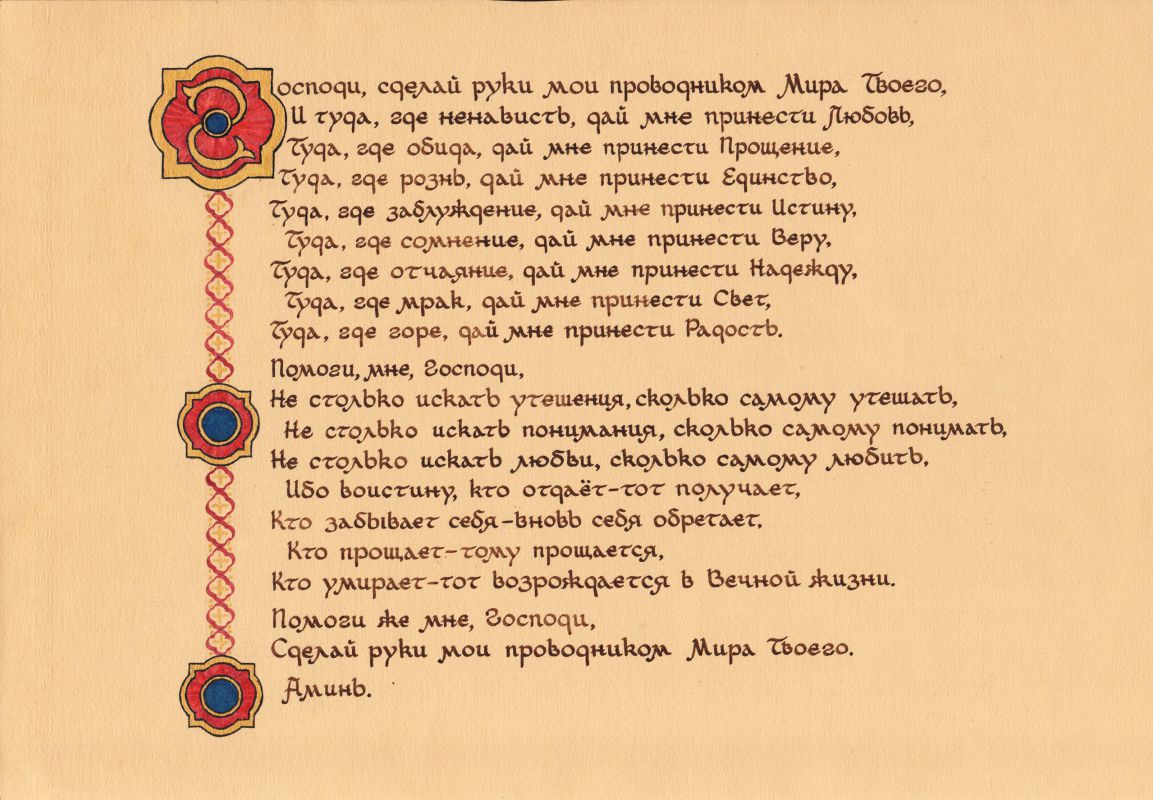 Господи, сделай руки мои проводником Мира Твоего,
И туда, где ненависть, дай мне принести Любовь,
Туда, где обида, дай мне принести Прощение,
Туда, где рознь, дай мне принести Единство,
Туда, где заблуждение, дай мне принести Истину,
Туда, где сомнение, дай мне принести Веру,
Туда, где отчаяние, дай мне принести Надежду,
Туда, где мрак, дай мне принести Свет,
Туда, где горе, дай мне принести Радость.
Помоги, мне, Господи,
Не столько искать утешения, сколько самому утешать,
Не столько искать понимания, сколько самому понимать,
Не столько искать любви, сколько самому любить,
Ибо воистину, кто отдаёт-тот получает,
Кто забывает себя-вновь себя обретает,
Кто прощает-тому прощается,
Кто умирает-тот возрождается в Вечной жизни.
Помоги же мне, Господи,
Сделай руки мои проводником Мира Твоего.
Аминь.